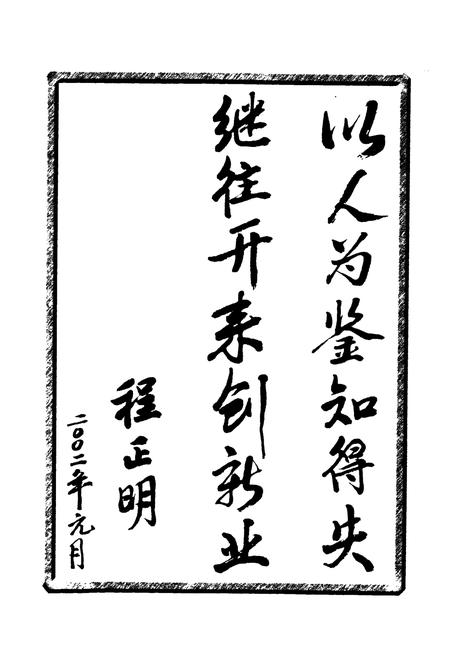 以人为鉴知得失
继往开来创新业
程正明
二〇〇二年元月